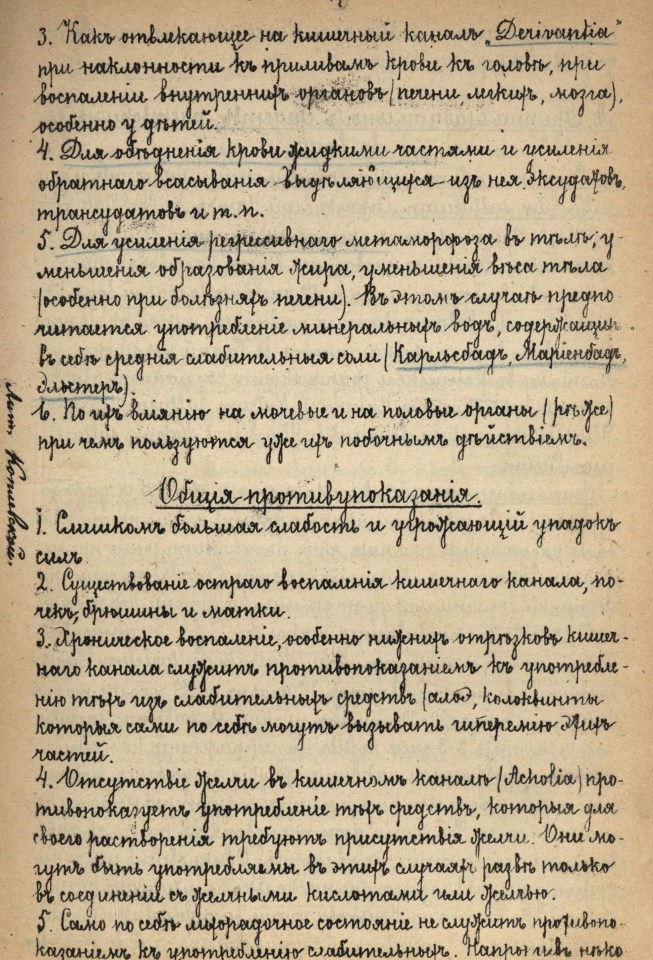 3. Какъ отвлекающее на кишечный каналъ „Derivantia"
при наклонности къ приливамъ крови къ головѣ, при
воспаленіи внутреннихъ органовъ (печени, легкихъ, мозга),
особенно у дѣтей.
4. Для обѣдненія крови жидкими частями и усиленія
обратнаго всасыванія выдѣляющихся изъ нея эксудатовъ,
трансудатовъ и т. п.
5. Для усиленія регрессивнаго метаморфоза въ тѣлѣ, у-
меньшенія образованія жира, уменьшенія вѣса тѣла
(особенно при болѣзняхъ печени). Въ этомъ случаѣ предпо
читается употребленіе минеральныхъ водъ, содержащихъ
въ себѣ среднія слабительныя соли (Карльсбадъ, Маріенбадъ,
Эльстеръ)
6. По ихъ вліянію на мочевые и на половые органы (рѣже)
при чемъ пользуются уже ихъ побочнымъ дѣйствіемъ.
Лит. Котельной.
Общія противупоказанія.
1. Слишкомъ большая слабость и угрожающій упадокъ
силъ
2. Существованіе остраго воспаленія кишечнаго канала, по-
чекъ, брюшины и матки.
3. Хроническое воспаленіе, особенно нижнихъ отрѣзковъ кишеч-
наго канала служитъ противопоказаніемъ къ употребле-
нію тѣхъ изъ слабительныхъ средствъ (алоэ, колоквинты
которыя сами по себѣ могутъ вызывать гиперемію этихъ
частей.
4. Отсутствіе желчи въ кишечномъ каналѣ (Acholia) про-
тивопоказуетъ употребленіе тѣхъ средствъ, которыя для
своего растворенія требуютъ присутствія желчи. Они мо-
гутъ быть употребляемы въ этихъ случаяхъ развѣ только
въ соединеніи съ желчными кислотами или желчью.
5. Само по себѣ лихорадочное состояніе не служитъ противопо-
казаніемъ къ употребленію слабительныхъ. Напротивъ нѣко-